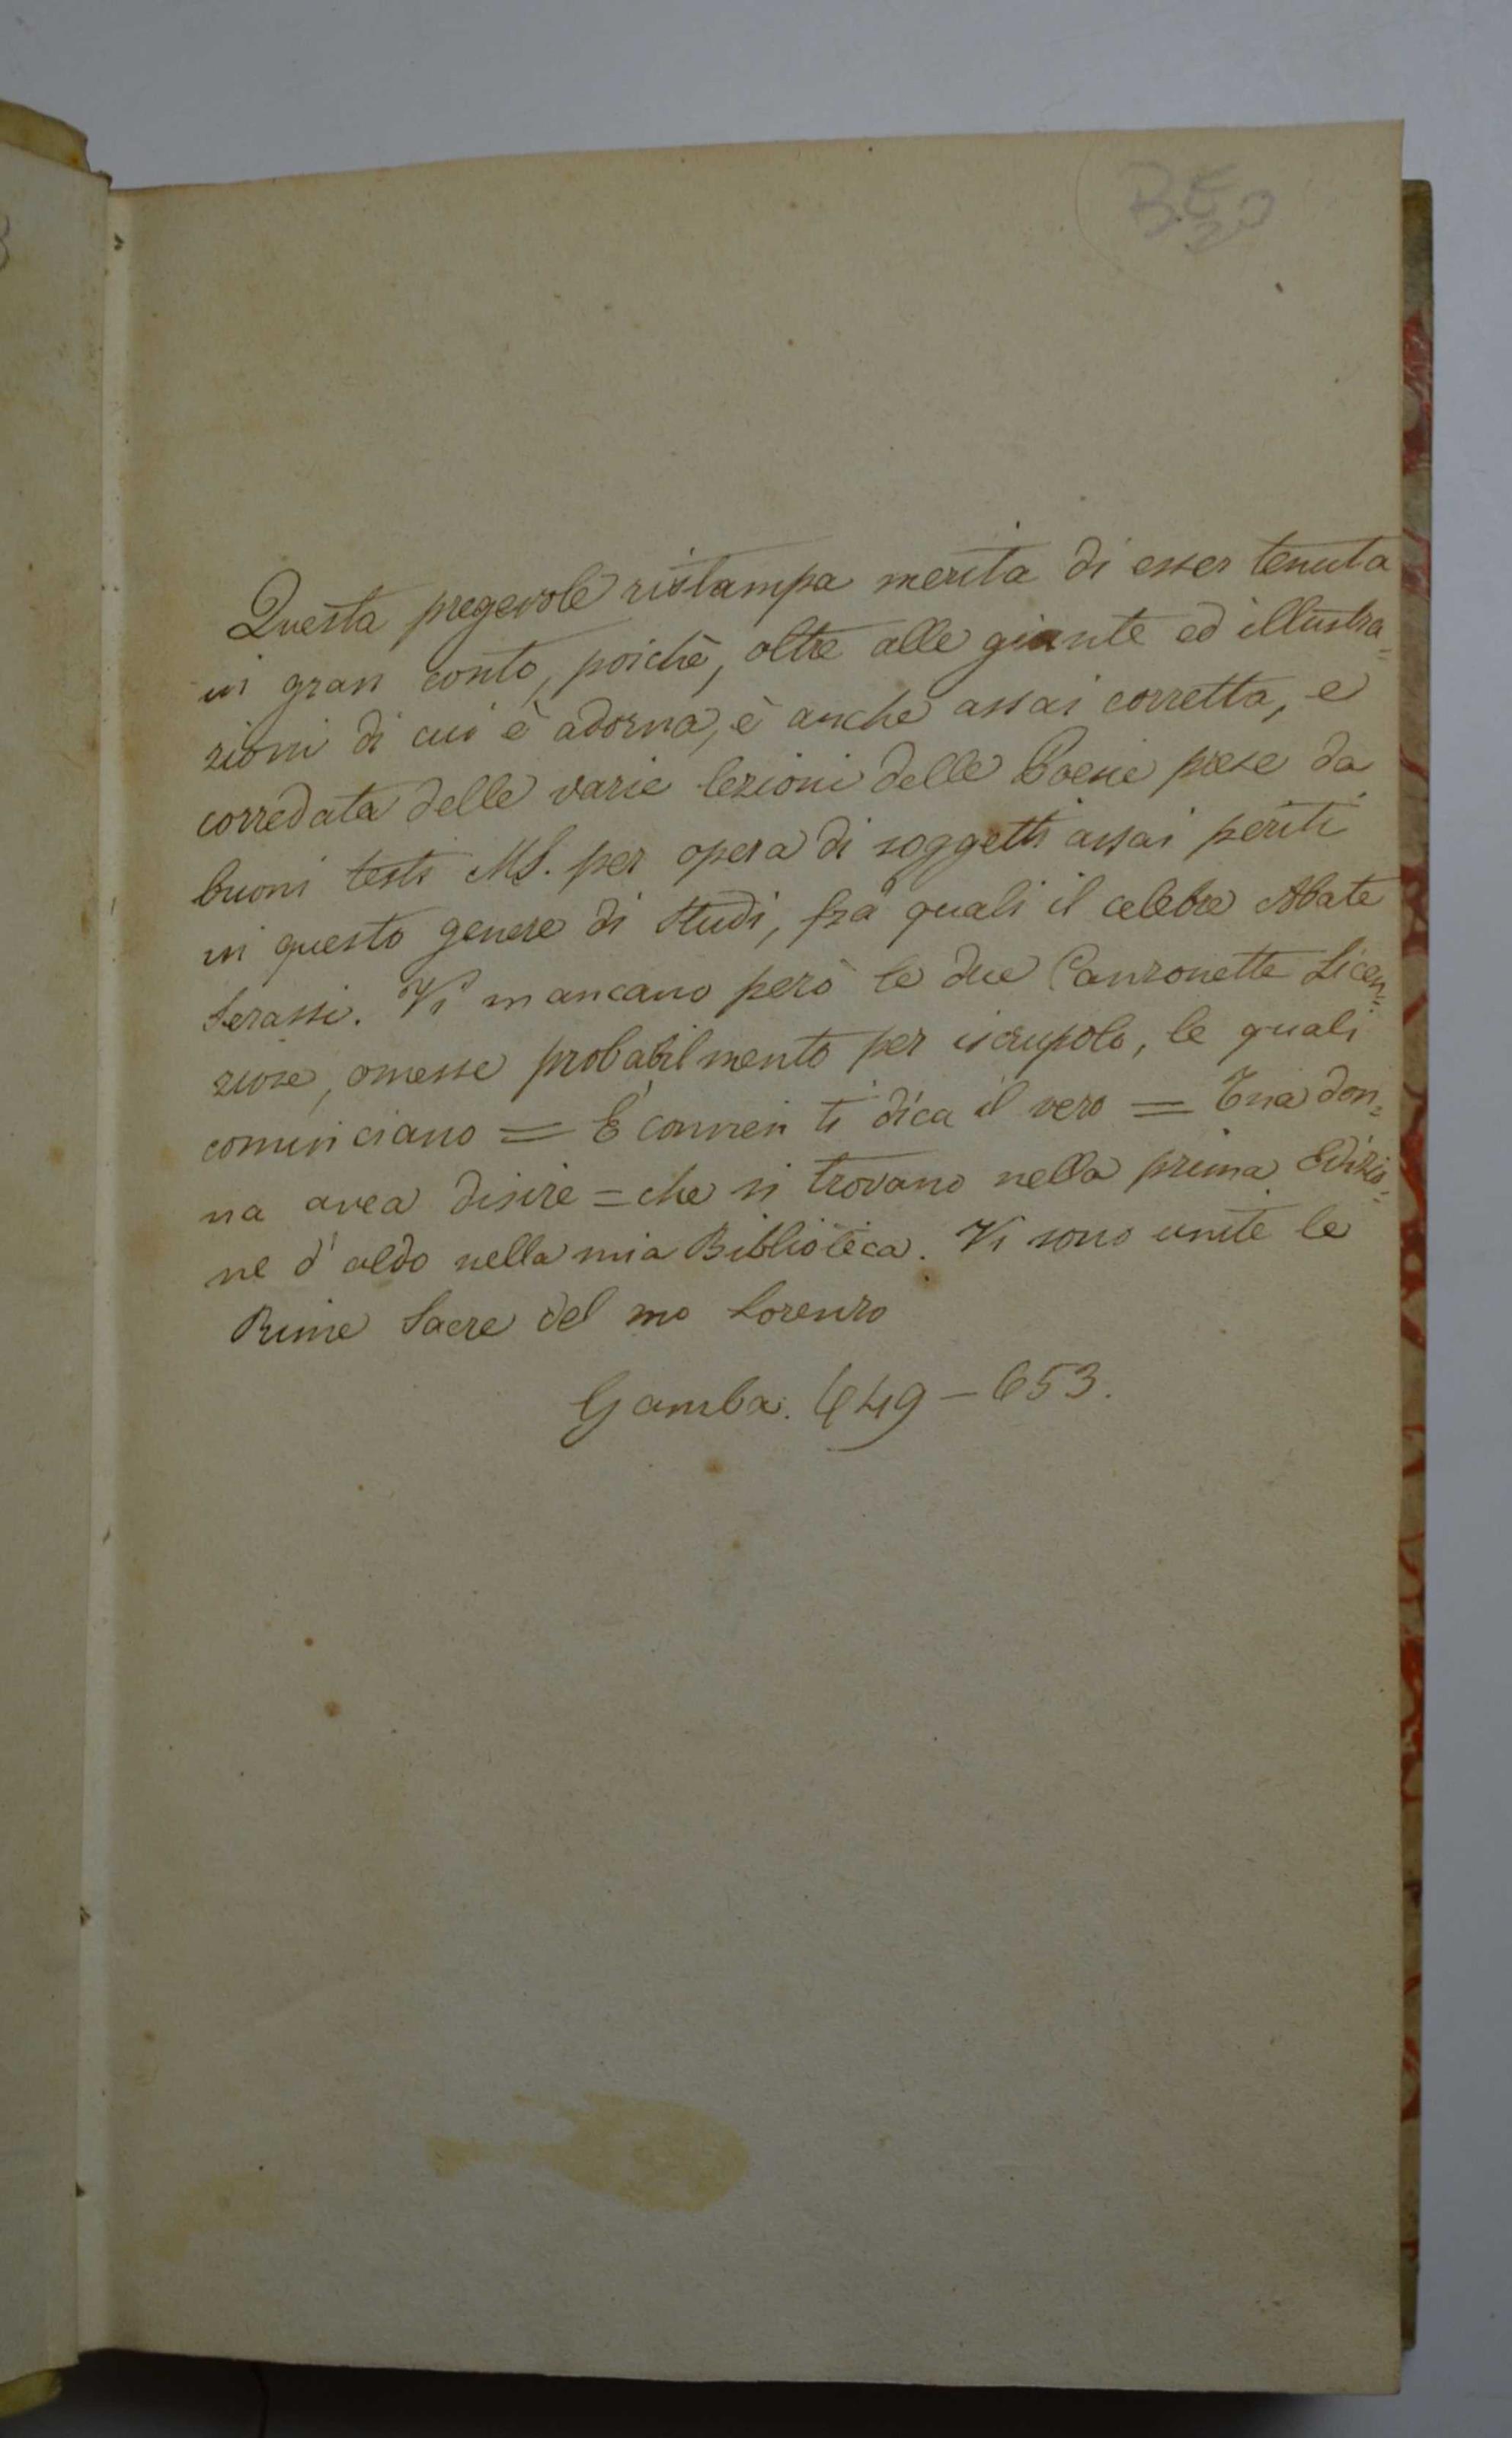 Questa pregevole ristampa merita di esser tenuta
in gran conto, poichè, oltre alle giunte ed illustra=
zioni di cui è adorna, è anche assai corretta, e
corredata delle varie lezioni delle Poesie prese da
buoni testi MS. per opera di soggetti assai periti
in questo genere di studi, fra quali il celebre Abate
Serassi. Vi mancano però le due Canzonette Licen=
ziose, omesse probabilmente per iscrupolo, le quali
cominciano = E' convien ti dica il vero = Una don=
na avea disire = che si trovano nella prima Edizio=
ne d'aldo nella mia Biblioteca. Vi sono unite le
Rime Sacre del mo Lorenzo
Gamba. 649 - 653.